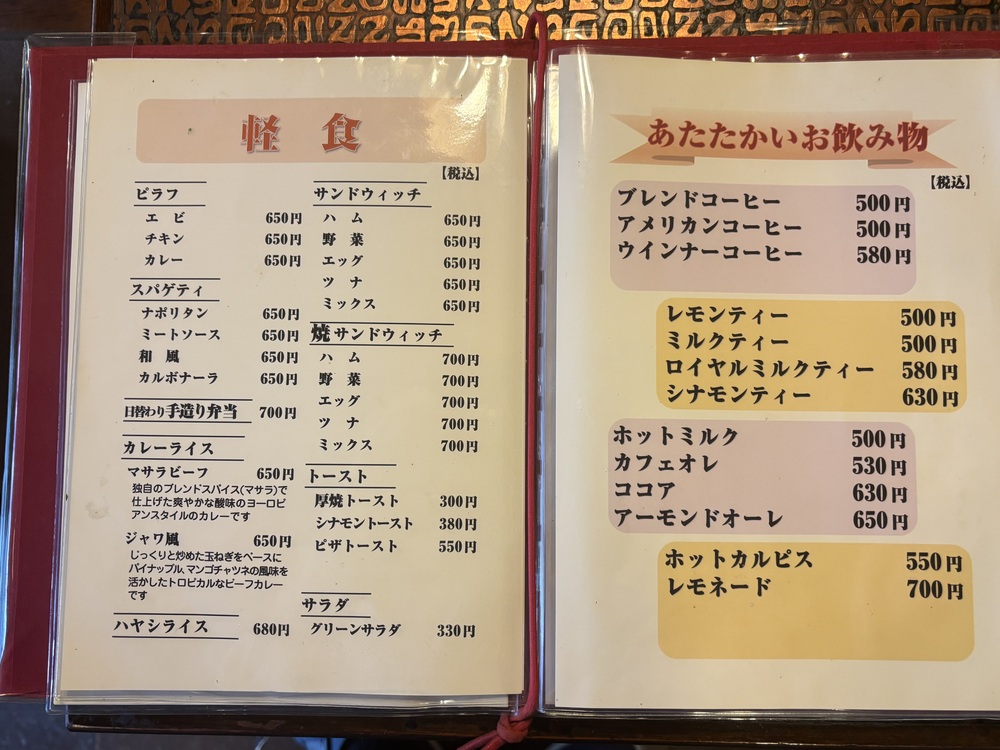 軽食
【税込】
ピラフ
エビ 650円
チキン 650円
カレー 650円
スパゲティ
ナポリタン 650円
ミートソース 650円
和風 650円
カルボナーラ 650円
日替わり手造り弁当 700円
カレーライス
マサラビーフ 650円
独自のブレンドスパイス(マサラ)で
仕上げた爽やかな酸味のヨーロピ
アンスタイルのカレーです
ジャワ風 650円
じっくりと炒めた玉ねぎをベースに
パイナップル、マンゴチャツネの風味を
活かしたトロピカルなビーフカレー
です
ハヤシライス 680円
サンドウィッチ
ハム 650円
野菜 650円
エッグ 650円
ツナ 650円
ミックス 650円
焼サンドウィッチ
ハム 700円
野菜 700円
エッグ 700円
ツナ 700円
ミックス 700円
トースト
厚焼トースト 300円
シナモントースト 380円
ピザトースト 550円
サラダ
グリーンサラダ 330円
あたたかいお飲み物
【税込】
ブレンドコーヒー 500円
アメリカンコーヒー 500円
ウインナーコーヒー 580円
レモンティー 500円
ミルクティー 500円
ロイヤルミルクティー 580円
シナモンティー 630円
ホットミルク 500円
カフェオレ 530円
ココア 630円
アーモンドオーレ 650円
ホットカルピス 550円
レモネード 700円